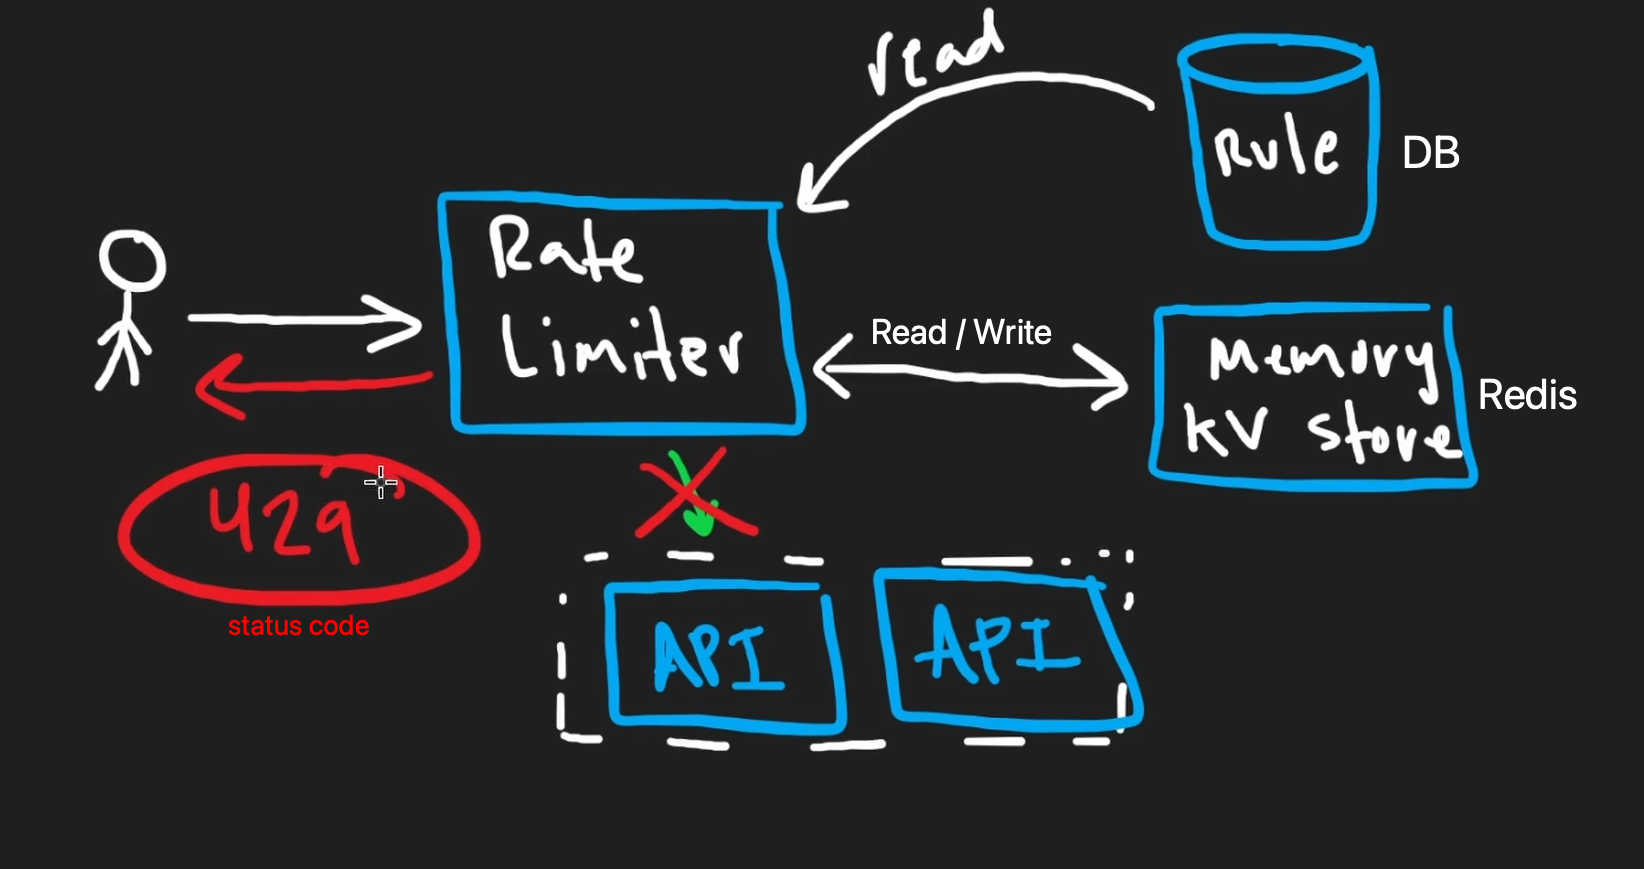 read
Rule
DB
Rate
Limiter
Read / Write
Memory
KV store
Redis
429
status code
API
API